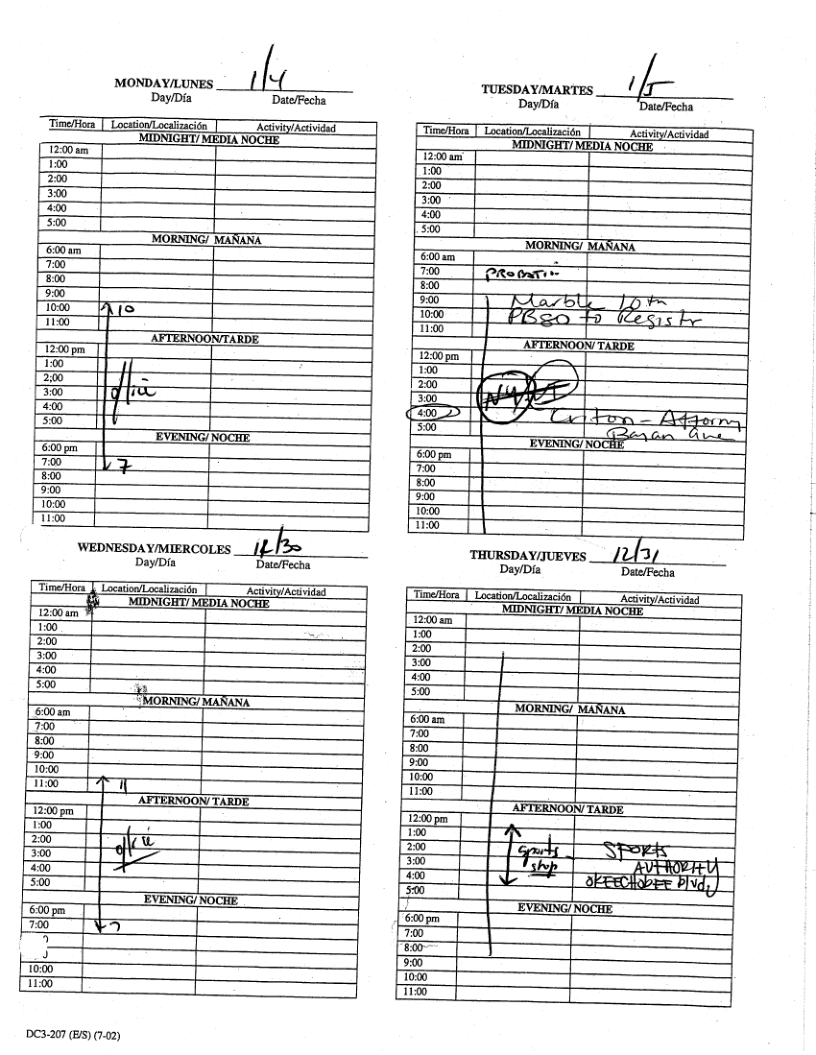 MONDAY/LUNES 1/4
Day/Día Date/Fecha
Time/Hora Location/Localización Activity/Actividad
MIDNIGHT/ MEDIA NOCHE
12:00 am
1:00
2:00
3:00
4:00
5:00
MORNING/ MAÑANA
6:00 am
7:00
8:00
9:00
10:00 10
11:00
AFTERNOON/TARDE
12:00 pm
1:00
2;00
3:00 office
4:00
5:00
EVENING/ NOCHE
6:00 pm
7:00 7
8:00
9:00
10:00
11:00
TUESDAY/MARTES 1/5
Day/Día Date/Fecha
Time/Hora Location/Localización Activity/Actividad
MIDNIGHT/ MEDIA NOCHE
12:00 am
1:00
2:00
3:00
4:00
5:00
MORNING/ MAÑANA
6:00 am
7:00 PROBATION
8:00
9:00 Marble 10th
10:00 PBSO to Registr
11:00
AFTERNOON/ TARDE
12:00 pm
1:00
2:00
3:00
4:00 Criton - Attorny
5:00
EVENING/ NOCHE
6:00 pm
7:00
8:00
9:00
10:00
11:00
WEDNESDAY/MIERCOLES 12/30
Day/Día Date/Fecha
Time/Hora Location/Localización Activity/Actividad
MIDNIGHT/ MEDIA NOCHE
12:00 am
1:00
2:00
3:00
4:00
5:00
MORNING/ MAÑANA
6:00 am
7:00
8:00
9:00
10:00
11:00 11
AFTERNOON/ TARDE
12:00 pm
1:00
2:00 office
3:00
4:00
5:00
EVENING/ NOCHE
6:00 pm
7:00 7
10:00
11:00
THURSDAY/JUEVES 12/31
Day/Día Date/Fecha
Time/Hora Location/Localización Activity/Actividad
MIDNIGHT/ MEDIA NOCHE
12:00 am
1:00
2:00
3:00
4:00
5:00
MORNING/ MAÑANA
6:00 am
7:00
8:00
9:00
10:00
11:00
AFTERNOON/ TARDE
12:00 pm
1:00
2:00 Sports SPORTS
3:00 shop AUTHORITY
4:00 OKEECHOBEE blvd,
5:00
EVENING/ NOCHE
6:00 pm
7:00
8:00
9:00
10:00
11:00
DC3-207 (E/S) (7-02)